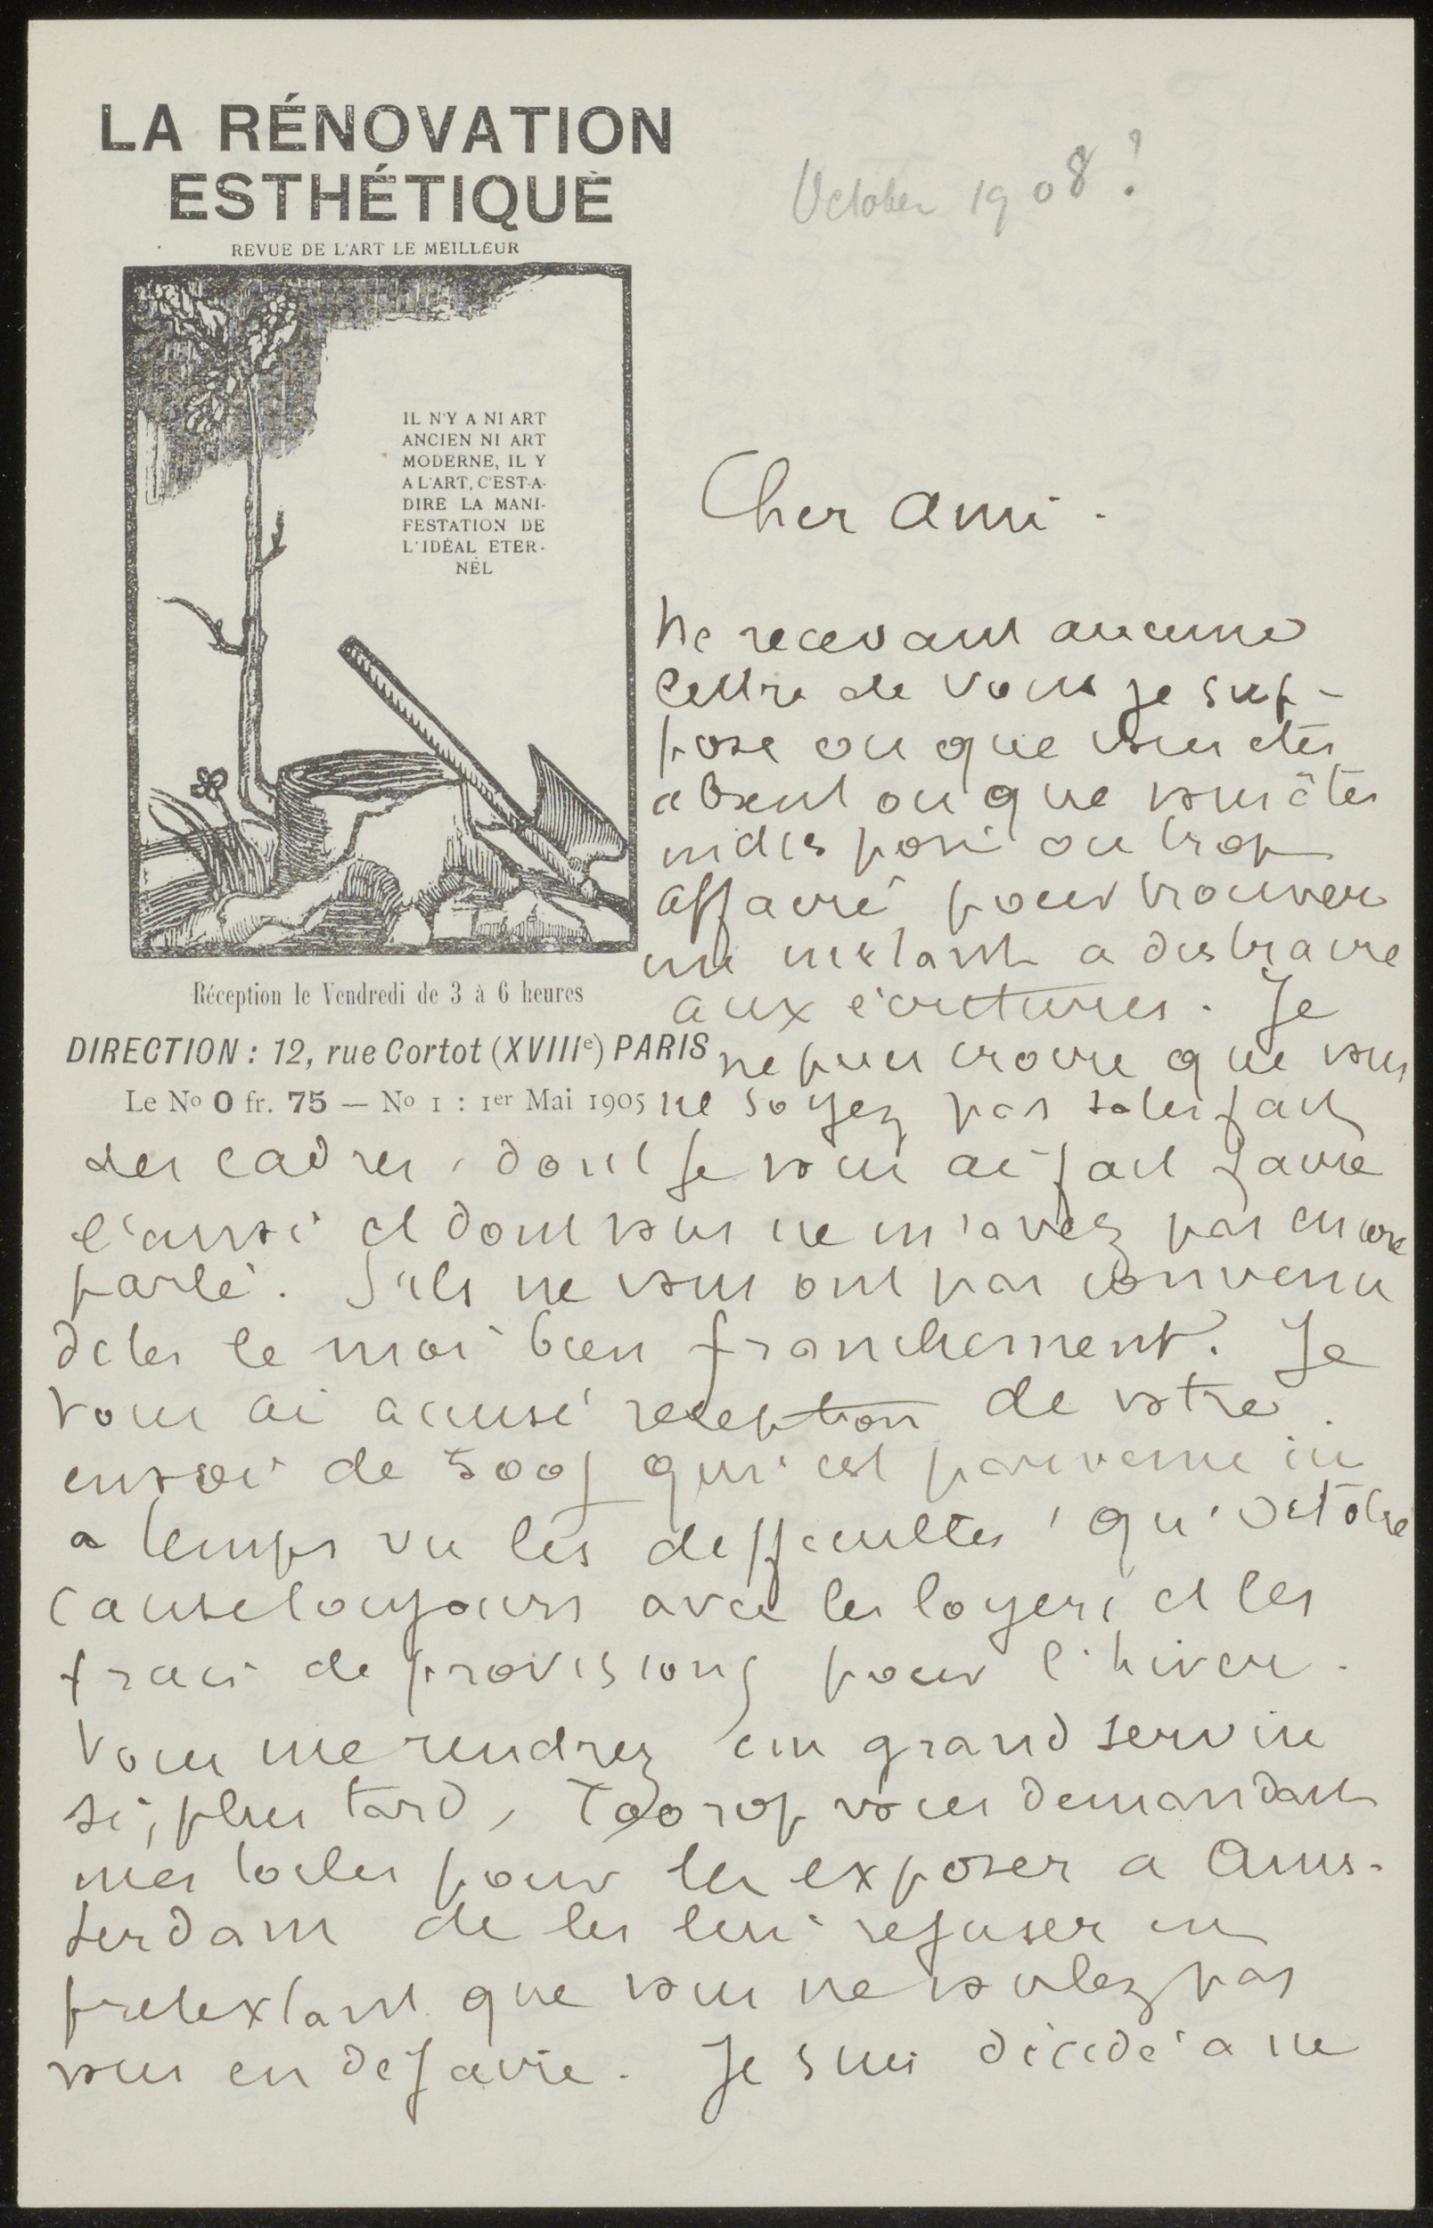 LA RÉNOVATION
ESTHÉTIQUE
REVUE DE L'ART LE MEILLEUR
October 1908?
IL N'Y A NI ART
ANCIEN NI ART
MODERNE, IL Y
A L'ART, C'EST-A-
DIRE LA MANI-
FESTATION DE
L'IDÉAL ETER-
NEL
Réception le Vendredi de 3 à 6 heures
DIRECTION : 12, rue Cortot (XVIIIe) PARIS
Le No 0 fr. 75 — No 1 : 1er Mai 1905
Cher ami.
Ne recevant aucune
lettre de vous je sup-
pose ou que vous etes
absent ou que vous êtes
indisposé ou trop
affairé pour trouver
un instant a distraire
aux écritures. Je
ne puis croire que vous
ne soyez pas satisfait
des cadres, dont je vous ai fait faire
l'envoi et dont vous ne m'avez pas encore
parlé. S'ils ne vous ont pas convenu
dites le moi bien franchement. Je
vous ai accusé reception de votre
envoi de 500f qui est parvenu ici
a temps vu les difficultés qu'octobre
cause toujours avec les loyers et les
frais de provisions pour l'hiver.
Vous me rendrez un grand service
si, plus tard, Toorop vous demandant
mes toiles pour les exposer a Ams-
terdam de les lui refuser en
pretextant que vous ne voulez pas
vous en défaire. Je suis décidé a ne